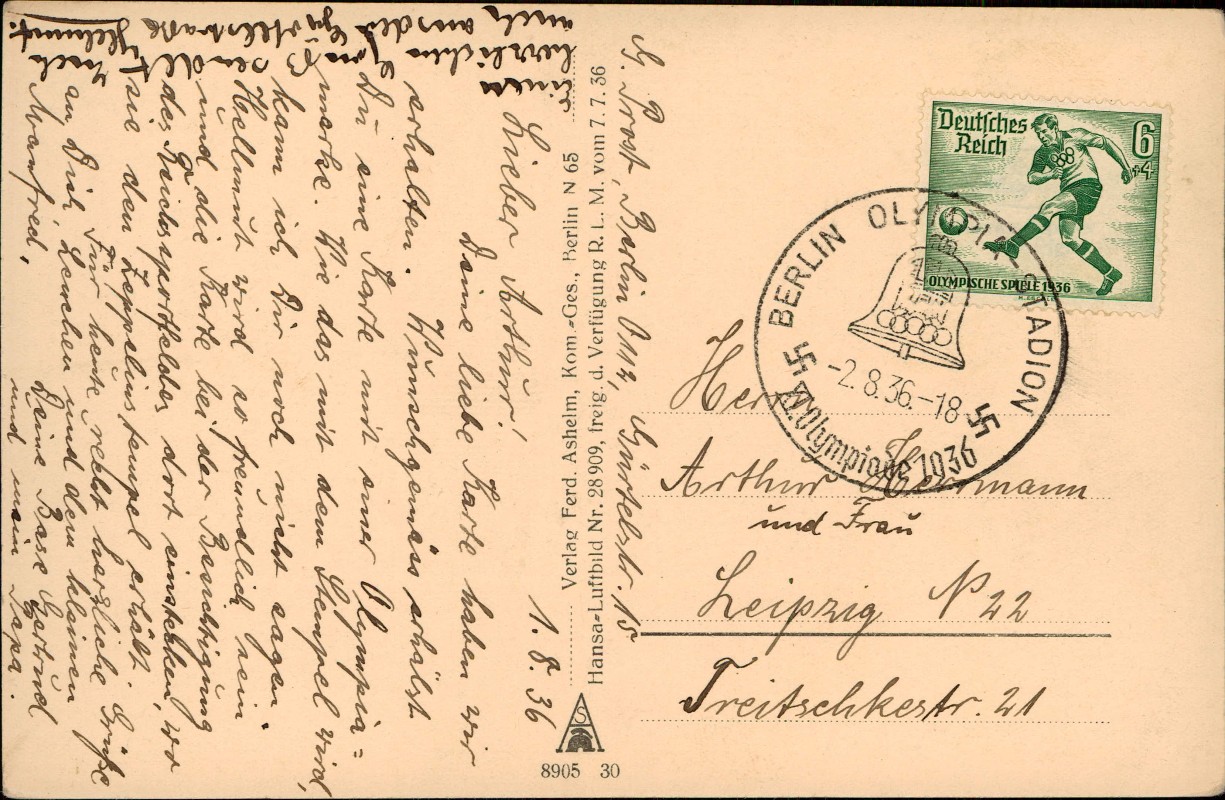 1. 8. 36
Lieber Arthur!
Deine liebe Karte haben wir
erhalten. Wunschgemäss erhälst
Du eine Karte mit einer Olympia=
marke. Wie das mit dem Stempel wird,
kann ich Dir noch nicht sagen.
Hellmut wird so freundlich sein
und die Karte bei der Besichtigung
des Reichssportfeldes dort einstecken, wo
sie den Zeppelinstempel erhält.
Für heute recht herzliche Grüße
an Dich, Lenchen und den kleinen
Manfred,
Deine Base Gertrud
und mein Papa.
Einen
herzlichen
sendet
Euch
auch aus der Gürtelstraße
Helmut.
Verlag Ferd. Ashelm, Kom.-Ges., Berlin N 65
Hansa-Luftbild Nr. 28909, freig. d. Verfügung R. L. M. vom 7. 7. 36
G. Probst, Berlin O 112, Gürtelstr. 15
AS
8905 30
Deutsches
Reich
6
+4
OLYMPISCHE SPIELE 1936
BERLIN OLYMPIA-STADION
-2.8.36.-18
XI. Olympiade 1936
Herrn
Arthur Herrmann
und Frau
Leipzig N 22
Treitschkestr. 21